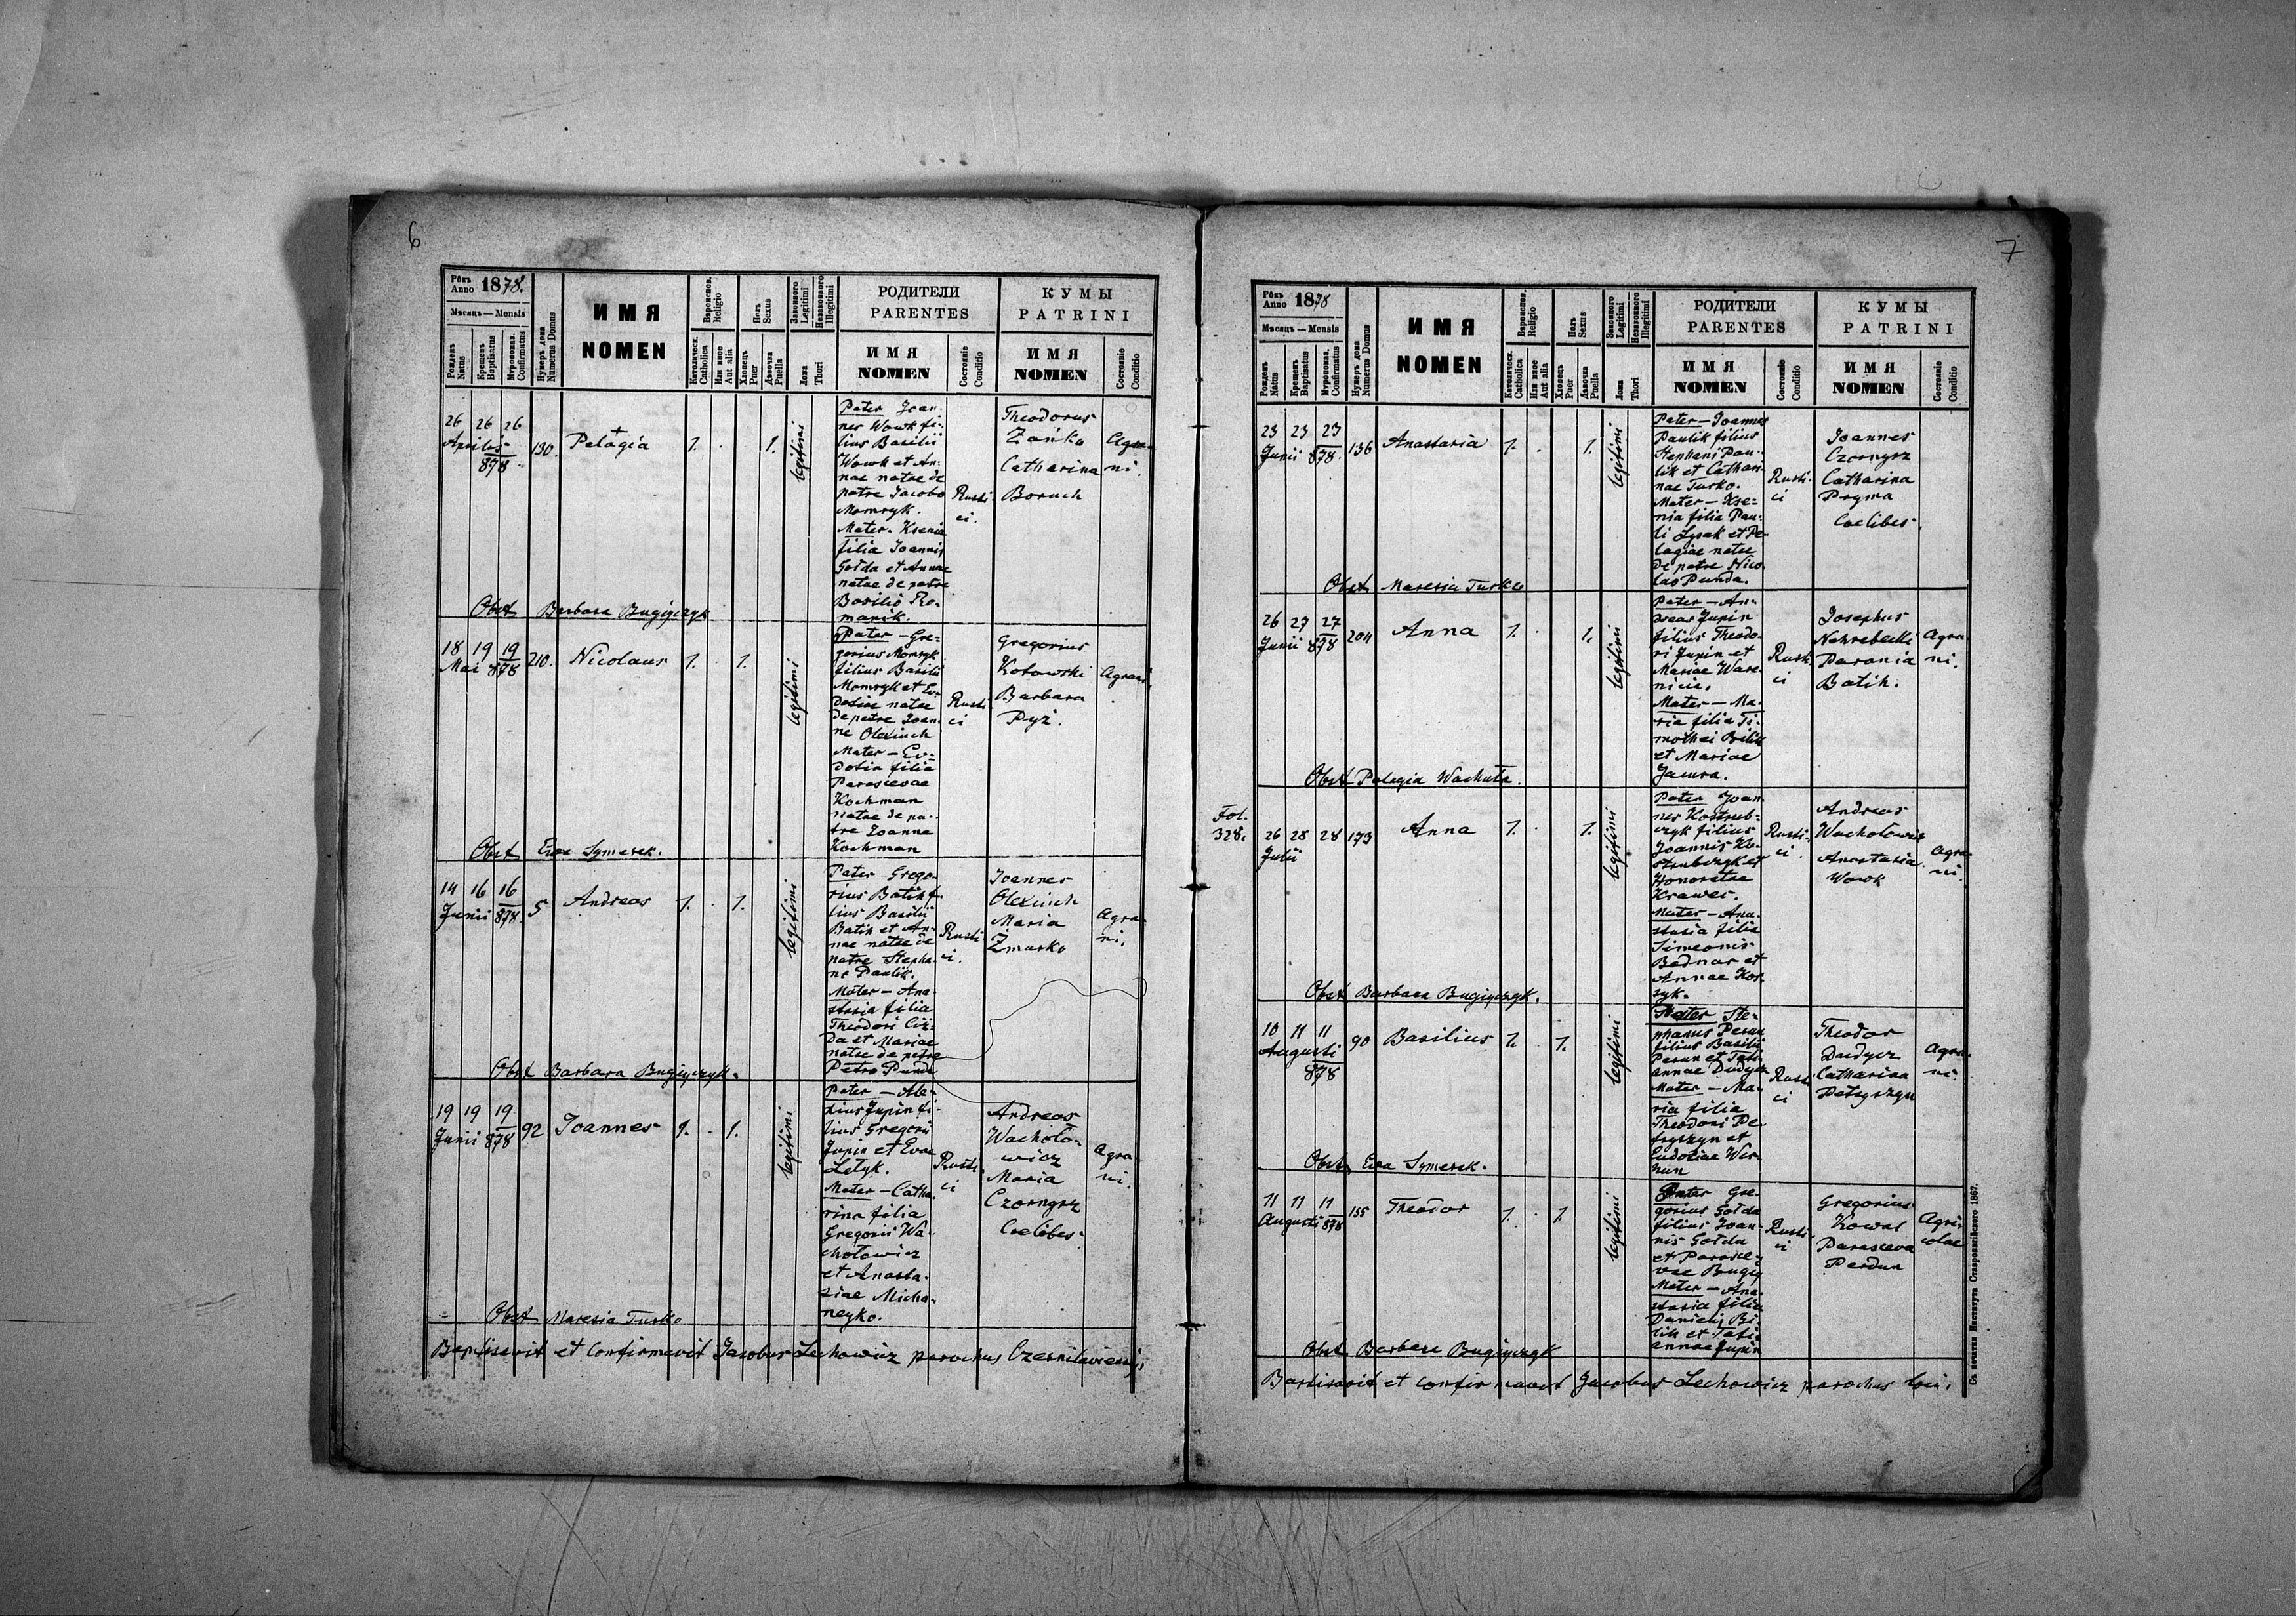 6
Рôкъ Anno 1878.
Мѣсяцъ — Mensis
Рожденъ Natus
Крещенъ Baptisatus
Мѵропомаз. Confirmatus
Нумеръ дома Numerus Domus
ИМЯ
NOMEN
Вѣроиспов. Religio
Католическ. Catholica
Или иное Aut alia
Полъ Sexus
Хлопецъ Puer
Дѣвочка Puella
Законного Legitimi
Незаконного Illegitimi
Ложа Thori
РОДИТЕЛИ
PARENTES
ИМЯ
NOMEN
Состояніе Conditio
КУМЫ
PATRINI
ИМЯ
NOMEN
Состояніе Conditio
26 26 26
Aprilis 878
130. Pelagia 1. . 1. legitimi
Pater Joan-
nes Wowk fi-
lius Basilii
Wowk et An-
nae natae de
patre Jacobo
Momryk.
Mater. Ksenia
filia Joannis
Gołda et Annae
natae de patre
Basilio Ro-
manik.
Rusti-
ci.
Theodorus
Zańko
Catharina
Boruch
Agra-
ni.
Obst Barbara Bugiyczyk
18 19 19
Mai 878
210. Nicolaus 1. . 1. legitimi
Pater — Gre-
gorius Momryk
filius Basilii
Momryk et Ev-
dosiae natae
de patre Joan-
ne Olexiuch
Mater — Ev-
dotia filia
Parascevae
Kochman
natae de pa-
tre Joanne
Kochman
Rusti-
ci
Gregorius
Kotowski
Barbara
Pyź.
Agrani.
Obst Eva Symerek.
14 16 16
Junii 878.
5 Andreas 1. . 1. legitimi
Pater Grego-
rius Batih fi-
lius Basilii
Batih et An-
nae natae de
patre Stepha-
no Paulik.
Mater — Ana-
stasia filia
Theodori
da et Mariae
natae de patre
Petro Punda
Rusti-
ci.
Joannes
Olexiuch
Maria
Żmurko
Agra-
ni.
Obst Barbara Bugiyczyk.
19 19 19
Junii 878
92 Joannes 1. . 1. legitimi
Pater — Ale-
xius Jupin fi-
lius Gregorii
Jupin et Evae
Letyk.
Mater — Catha-
rina filia
Gregorii Wa-
chołowicz
et Anasta-
siae Micha-
neyko.
Rusti-
ci
Andreas
Wachoło-
wicz
Maria
Czornysz
Coelibes.
Agra-
ni.
Obst Maresia Turko
Baptisavit et Confirmavit Jacobus Lechowicz parochus Czerniławiensis
7
Рôкъ Anno 1878
Мѣсяцъ — Mensis
Рожденъ Natus
Крещенъ Baptisatus
Мѵропомаз. Confirmatus
Нумеръ дома Numerus Domus
ИМЯ
NOMEN
Вѣроиспов. Religio
Католическ. Catholica
Или иное Aut alia
Полъ Sexus
Хлопецъ Puer
Дѣвочка Puella
Законного Legitimi
Незаконного Illegitimi
Ложа Thori
РОДИТЕЛИ
PARENTES
ИМЯ
NOMEN
Состояніе Conditio
КУМЫ
PATRINI
ИМЯ
NOMEN
Состояніе Conditio
23 23 23
Junii 878.
136 Anastasia 1. . 1. legitimi
Pater — Joannes
Paulik filius
Stephani Pau-
lik et Cathari-
nae Turko.
Mater — Kse-
nia filia Pau-
li Lysak et Pe-
lagiae natae
de patre Nico-
lao Punda.
Rusti-
ci
Joannes
Czornysz
Catharina
Pryma
Coelibes.
Obst Maresia Turko
26 27 27
Junii 878
204 Anna 1. . 1. legitimi
Pater — An-
dreas Jupin
filius Theodo-
ri Jupin et
Mariae Ware-
nicia.
Mater — Ma-
ria filia Ti-
mothei Bilik
et Mariae
Jacura.
Rusti-
ci
Josephus
Nahrebecki
Parania
Batih.
Agra-
ni.
Obst Pelagia Wachuła.
Fol.
328.
26 28 28
Julii
173 Anna 1. . 1. legitimi
Pater Joan-
nes Kostrub-
czyk filius
Joannis Ko-
strubczyk et
Honoratae
Krawec.
Mater — Ana-
stasia filia
Simeonis
Bednar et
Annae Kos-
zyk.
Rusti-
ci.
Andreas
Wachołowicz
Anastasia
Wowk
Agra-
ni.
Obst Barbara Bugiyczyk.
10 11 11
Augusti
878
90 Basilius 1. . 1. legitimi
Pater Ste-
phanus Perun
filius Basilii
Perun et Tati-
annae Dudycz
Mater — Ma-
ria filia
Theodori Pe-
tryszyn et
Eudoxiae Wer-
hun
Rusti-
ci
Theodor
Duidycz
Catharina
Petryszyn
Agra-
ni.
Obst. Eva Symerek.
11 11 11
Augusti 878
135 Theodor 1. . 1. legitimi
Pater Gre-
gorius Gołda
filius Joan-
nis Gołda
et Parasce-
vae Bugiy
Mater — Ana-
stasia filia
Danielis Bi-
lik et Tati-
annae Jupin
Rusti-
ci
Gregorius
Kowal
Parasceva
Perdun
Agri-
colae
Obst. Barbara Bugiyczyk
Baptisavit et confirmavit Jacobus Lechowicz parochus loci.
Съ печатни Института Ставропигійского 1867.